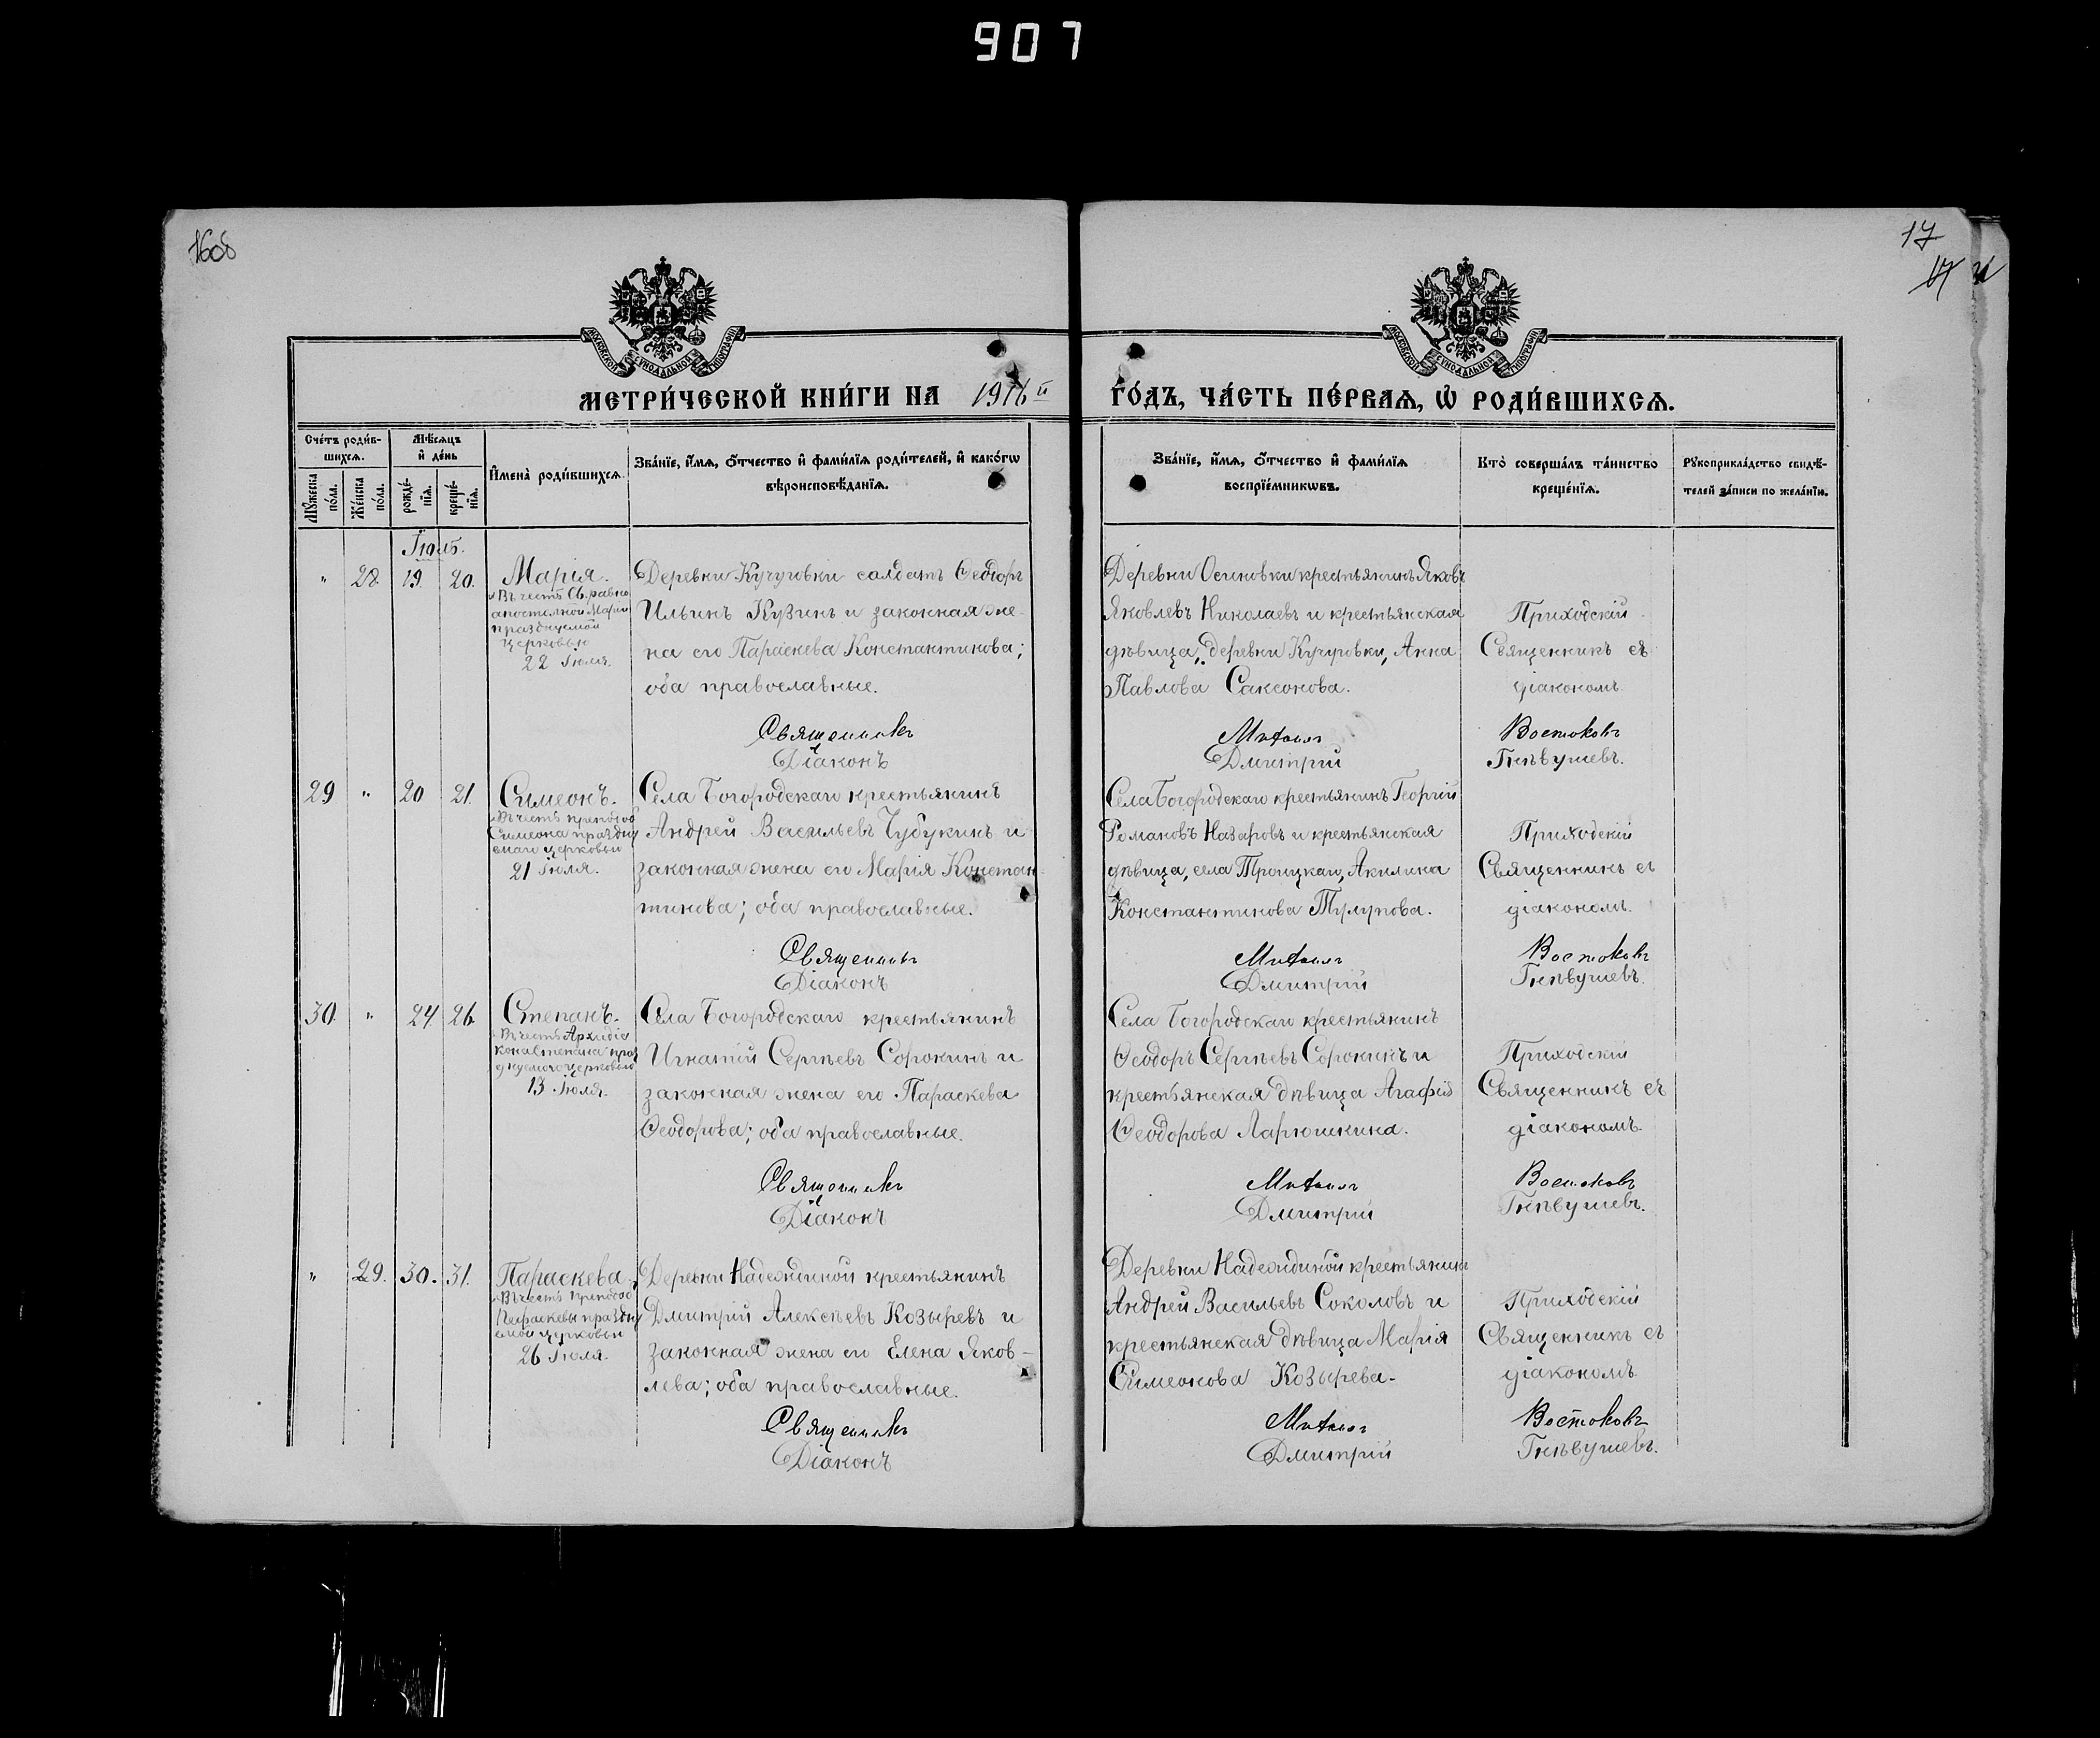 907
160б
17
МОСКОВСКОЙ СѴНОДАЛЬНОЙ ТИПОГРАФІИ
МОСКОВСКОЙ СѴНОДАЛЬНОЙ ТИПОГРАФІИ
МЕТРИ́ЧЕСКОЙ КНИ́ГИ НА 1916й
ГО́ДЪ, ЧА́СТЬ ПЕ́РВАѦ, Ѡ҆ РОДИ́ВШИХСѦ.
Сче́тъ роди́в-
шихсѧ.
Мꙋ́жеска по́ла.
Же́нска по́ла.
Мѣ́сѧцъ
и҆ де́нь
рожде́-
нїѧ.
креще́-
нїѧ.
И҆мена̀ роди́вшихсѧ.
Зва́нїе, и҆́мѧ, ѻ҆́тчество и҆ фами́лїѧ роди́телей, и҆ како́гѡ
вѣроисповѣ́данїѧ.
Зва́нїе, и҆́мѧ, ѻ҆́тчество и҆ фами́лїѧ
воспрїе́мникѡвъ.
Кто̀ соверша́лъ та́инство
креще́нїѧ.
Рꙋкоприкла́дство свидѣ́-
телей за́писи по жела́нїю.
Іюль.
" 28. 19. 20. Марія.
Въ честь Св. равно
апостольной Маріи
празднуемой
церковью
22 Іюля.
Деревни Кучуровки солдатъ Ѳеодоръ
Ильинъ Кузинъ и законная же-
на его Параскева Константинова;
оба православные.
Деревни Осиновки крестьянинъ Яковъ
Яковлевъ Николаевъ и крестьянская
дѣвица, деревни Кучуровки, Анна
Павлова Саксонова.
Приходскій
Священникъ съ
діакономъ.
Священникъ Михаилъ Востоковъ
Діаконъ Дмитрій Гнѣвушевъ.
29 " 20 21. Симеонъ.
Въ честь преподоб
Симеона праздну
емаго церковью
21 Іюля.
Села Богородскаго крестьянинъ
Андрей Васильевъ Чубукинъ и
законная жена его Марія Констан-
тинова; оба православные.
Села Богородскаго крестьянинъ Георгій
Романовъ Назаровъ и крестьянская
дѣвица, села Троицкаго, Акилина
Константинова Тулупова.
Приходскій
Священникъ съ
діакономъ.
Священникъ Михаилъ Востоковъ
Діаконъ Дмитрій Гнѣвушевъ.
30. " 24 26. Степанъ.
Въ честь Архидіа
кона Степана праз
днуемого церковью
13 Іюля.
Села Богородскаго крестьянинъ
Игнатій Сергѣевъ Сорокинъ и
законная жена его Параскева
Ѳеодорова; оба православные.
Села Богородскаго крестьянинъ
Ѳеодоръ Сергѣевъ Сорокинъ и
крестьянская дѣвица Агафія
Ѳеодорова Ларюшкина.
Приходскій
Священникъ съ
діакономъ.
Священникъ Михаилъ Востоковъ
Діаконъ Дмитрій Гнѣвушевъ.
" 29. 30. 31. Параскева.
Въ честь преподоб
Параскевы праздну
емой церковью
26 Іюля.
Деревни Надеждиной крестьянинъ
Дмитрій Алексѣевъ Козыревъ и
законная жена его Елена Яков-
лева; оба православные.
Деревни Надеждиной крестьянинъ
Андрей Васильевъ Соколовъ и
крестьянская дѣвица Марія
Симеонова Козырева.
Приходскій
Священникъ съ
діакономъ
Священникъ Михаилъ Востоковъ
Діаконъ Дмитрій Гнѣвушевъ.